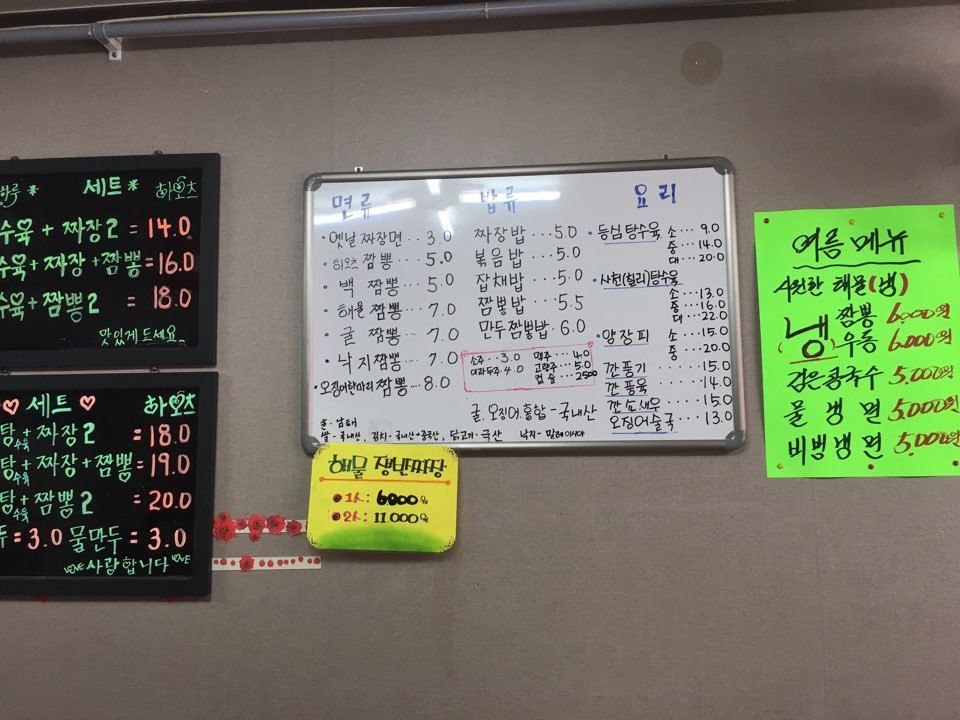 세트* 하오츠
수육 + 짜장 2 = 14.0
수육 + 짜장 + 짬뽕 = 16.0
수육 + 짬뽕 2 = 18.0
맛있게 드세요
♡ 세트 ♡ 하오츠
탕수육 + 짜장 2 = 18.0
탕수육 + 짜장 + 짬뽕 = 19.0
탕수육 + 짬뽕 2 = 20.0
= 3.0 물만두 = 3.0
LOVE 사랑합니다 LOVE
면류
· 옛날 짜장면 ... 3.0
· 하오츠 짬뽕 . 5.0
· 백 짬뽕 . 5.0
· 해물 짬뽕 . 7.0
· 굴 짬뽕 . 7.0
· 낙지짬뽕 . 7.0
· 오징어한마리 짬뽕 .. 8.0
밥류
짜장밥 ... 5.0
볶음밥 ... 5.0
잡채밥 .. 5.0
짬뽕밥 .. 5.5
만두짬뽕밥 . 6.0
소주 ... 3.0 맥주 ... 4.0
이과두주 4.0 고량주 .. 5.0
컵술 ... 2500
요리
· 등심탕수육 소 .. 9.0
중 .. 14.0
대 .. 20.0
· 사천(칠리)탕수육
소 .. 13.0
중 .. 16.0
대 .. 22.0
양장피 소 ... 15.0
중 ... 20.0
깐풍기 ... 15.0
깐풍육 ... 14.0
깐소새우 ... 15.0
오징어숙국 .. 13.0
굴, 오징어, 홍합 - 국내산
쌀 - 국내산, 김치 - 국내산+중국산, 닭고기 - 국산 낙지 - 말레이시아
해물 쟁반짜장
1人: 6000원
2人: 11.000원
여름 메뉴
시원한 해물(냉)
(냉) 짬뽕 6000원
우동 6.000원
검은콩국수 5.000원
물 냉면 5.000원
비빔냉면 5.000원